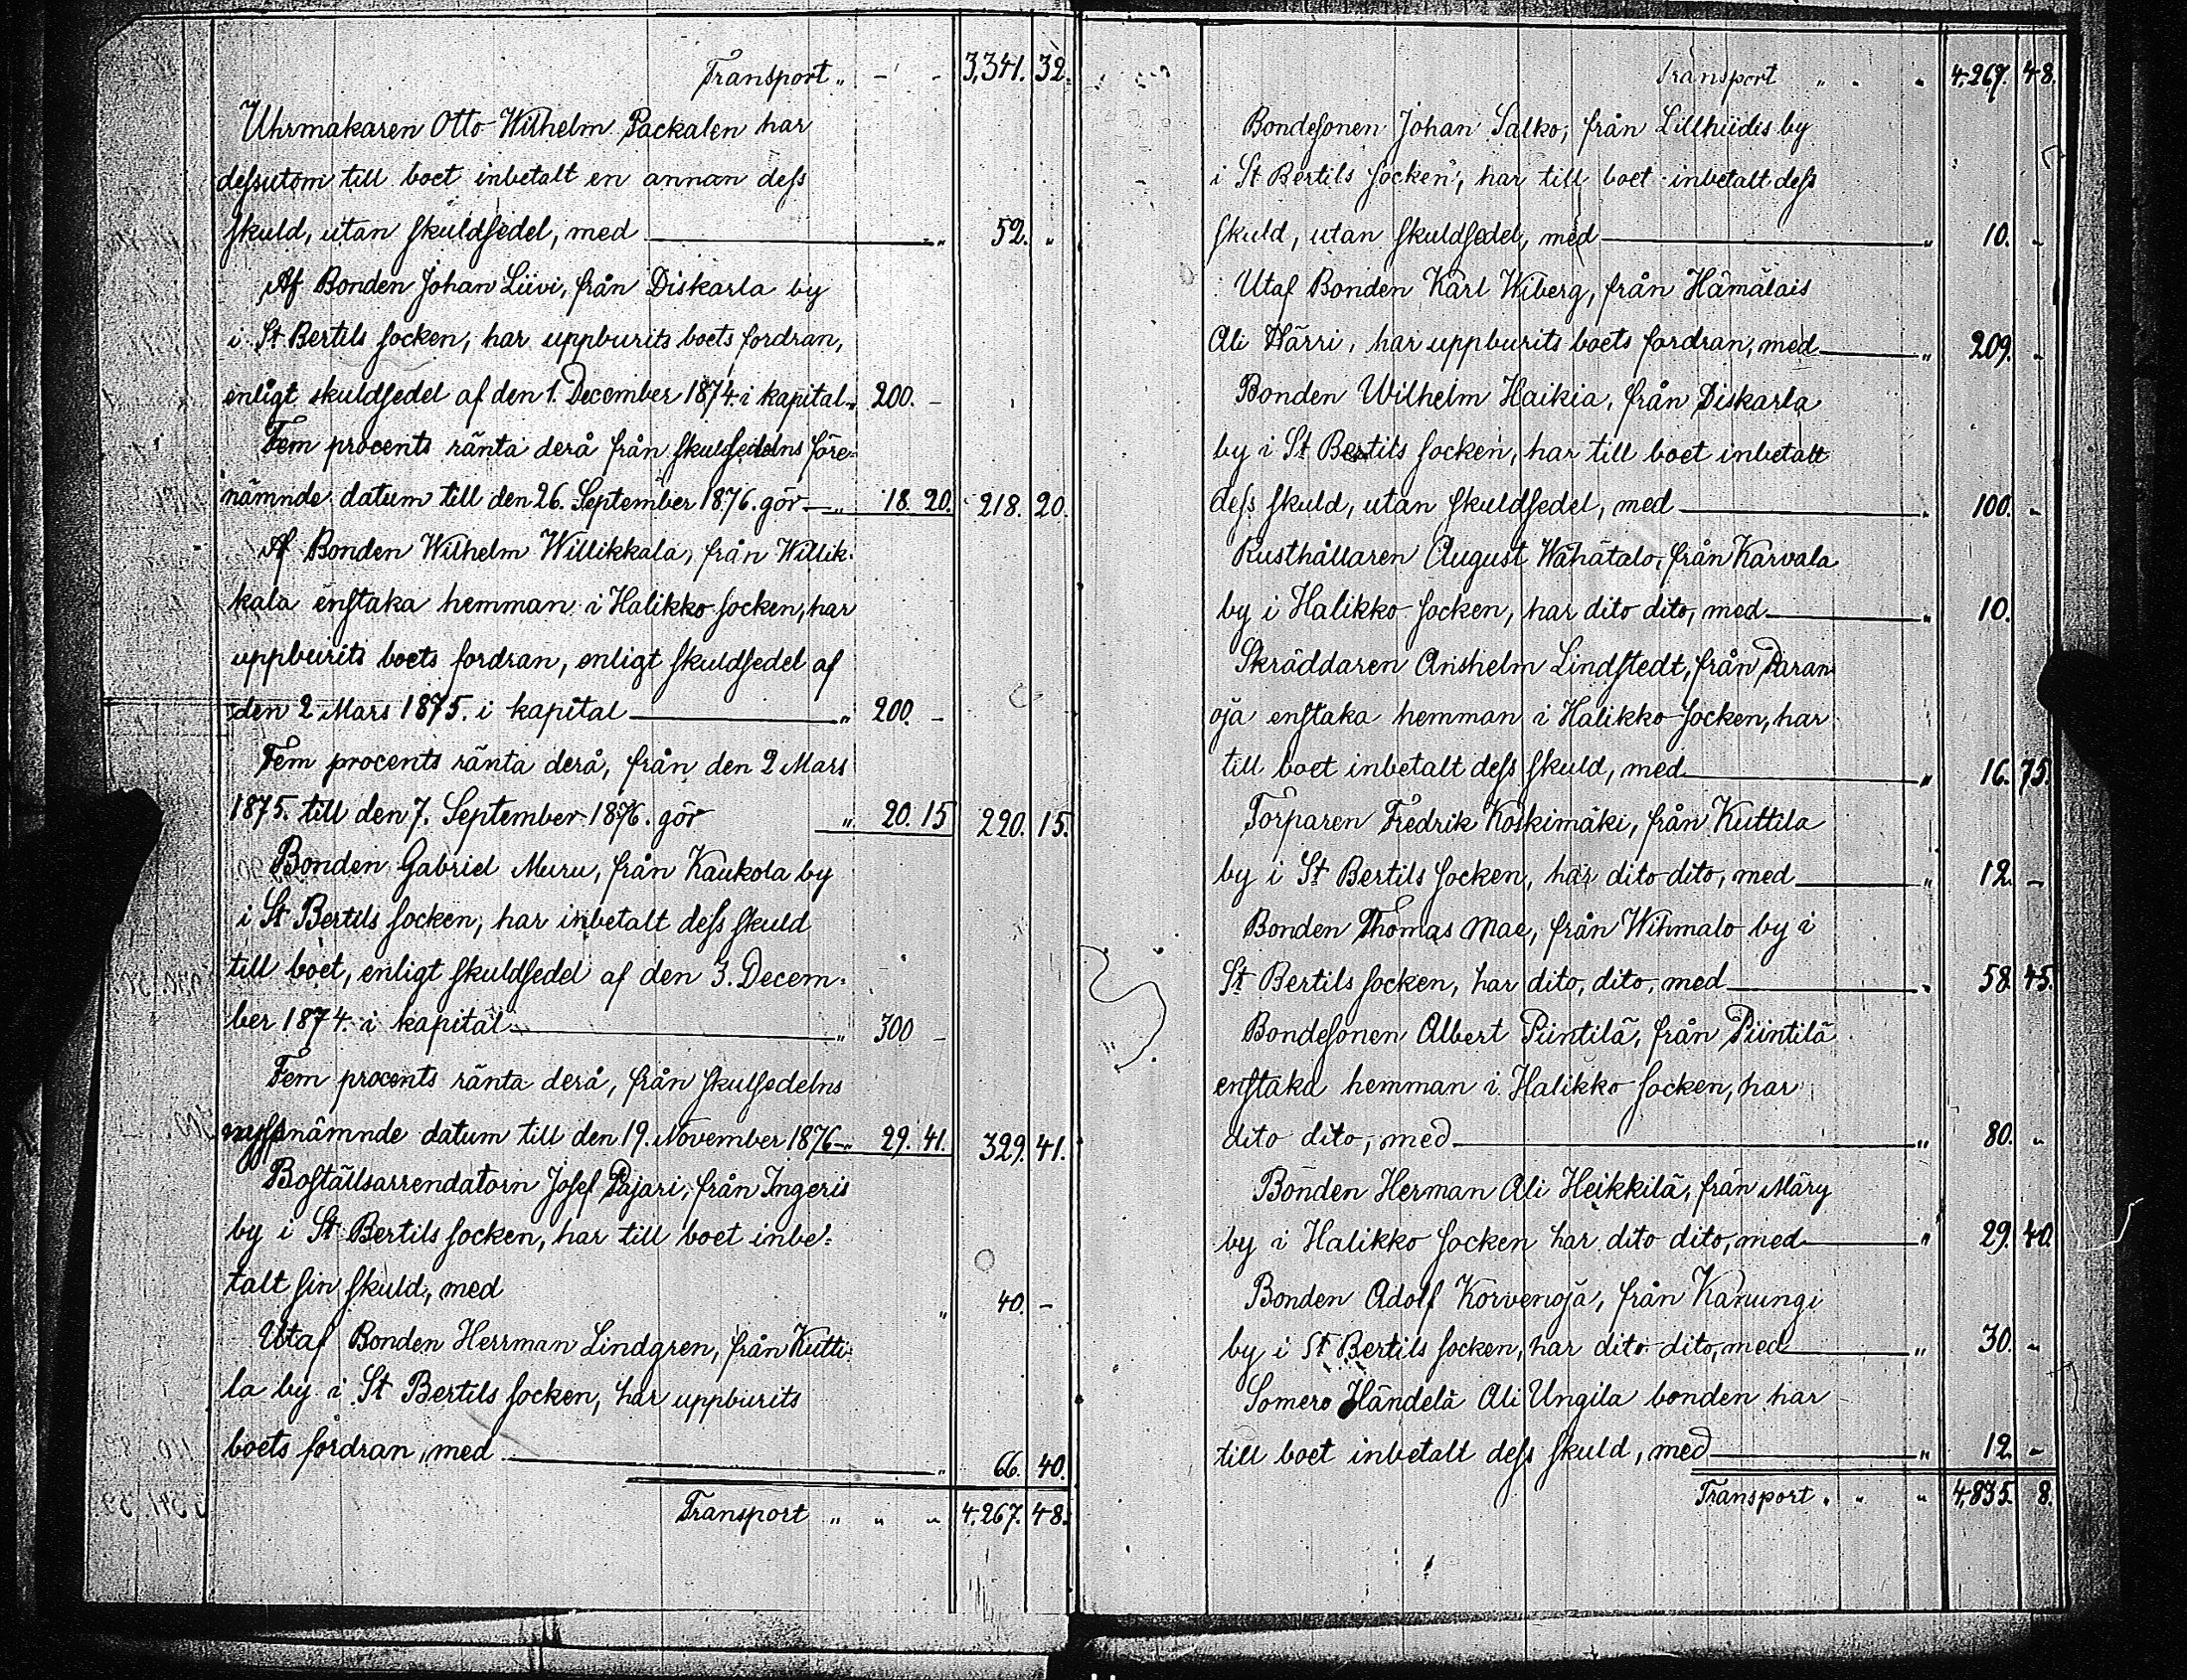 Transport „ - - 3,341. 32.
Uhrmakaren Otto Wilhelm Packalen har
dessutom till boet inbetalt en annan dess
skuld, utan skuldsedel, med „ 52. „
Af Bonden Johan Liivi, från Diskarla by
i St Bertils socken, har uppburits boets fordran,
enligt skuldsedel af den 1. December 1874. i kapital „ 200. -
Fem procents ränta derå från skulsedelns före-
nämnde datum till den 26. September 1876. gör „ 18. 20. 218. 20.
Af Bonden Wilhelm Willikkala, från Willik-
kala enstaka hemman i Halikko socken, har
uppburits boets fordran, enligt skuldsedel af
den 2 Mars 1875. i kapital „ 200. -
Fem procents ränta derå, från den 2 Mars
1875. till den 7. September 1876. gör „ 20. 15 220. 15.
Bonden Gabriel Muru, från Kaukola by
i St Bertils socken, har inbetalt dess skuld
till boet, enligt skuldsedel af den 3. Decem-
ber 1874. i kapital „ 300 -
Fem procents ränta derå, från skulsedelns
nyssnämnde datum till den 19. November 1876 „ 29. 41. 329. 41.
Boställsarrendatorn Josef Pajari, från Ingeris
by i St Bertils socken, har till boet inbe-
talt sin skuld, med „ 40. -
Utaf Bonden Herrman Lindgren, från Kutti-
la by i St Bertils socken, har uppburits
boets fordran, med „ 66. 40.
Transport „ „ „ 4,267. 48.
Transport „ „ „ 4,267. 48.
Bondesonen Johan Salko, från Lillhiidis by
i St Bertils socken, har till boet inbetalt dess
skuld, utan skuldsedel, med „ 10. „
Utaf Bonden Karl Wiberg, från Hämäläis
Ali Härri, har uppburits boets fordran, med „ 209. „
Bonden Wilhelm Haikia, från Diskarla
by i St Bertils socken, har till boet inbetalt
dess skuld, utan skuldsedel, med „ 100. „
Rusthållaren August Wähätalo, från Karvala
by i Halikko socken, har dito dito, med „ 10.
Skräddaren Anshelm Lindstedt, från Paran
oja enstaka hemman i Halikko socken, har
till boet inbetalt dess skuld, med „ 16. 75.
Torparen Fredrik Koskimäki, från Kuttila
by i St Bertils socken, har dito dito, med „ 12. -
Bonden Thomas Mae, från Wihmalo by i
St Bertils socken, har dito, dito, med „ 58. 45.
Bondesonen Albert Piintilä, från Piintilä
enstaka hemman i Halikko socken, har
dito dito, med „ 80. „
Bonden Herman Ali Heikkilä, från Märy
by i Halikko socken har dito dito, med „ 29. 40.
Bonden Adolf Korvenoja, från Kanungi
by i St Bertils socken, har dito dito, med „ 30. „
Somero Händelä Ali Ungila bonden har
till boet inbetalt dess skuld, med „ 12. „
Transport „ „ „ 4,835. 8.